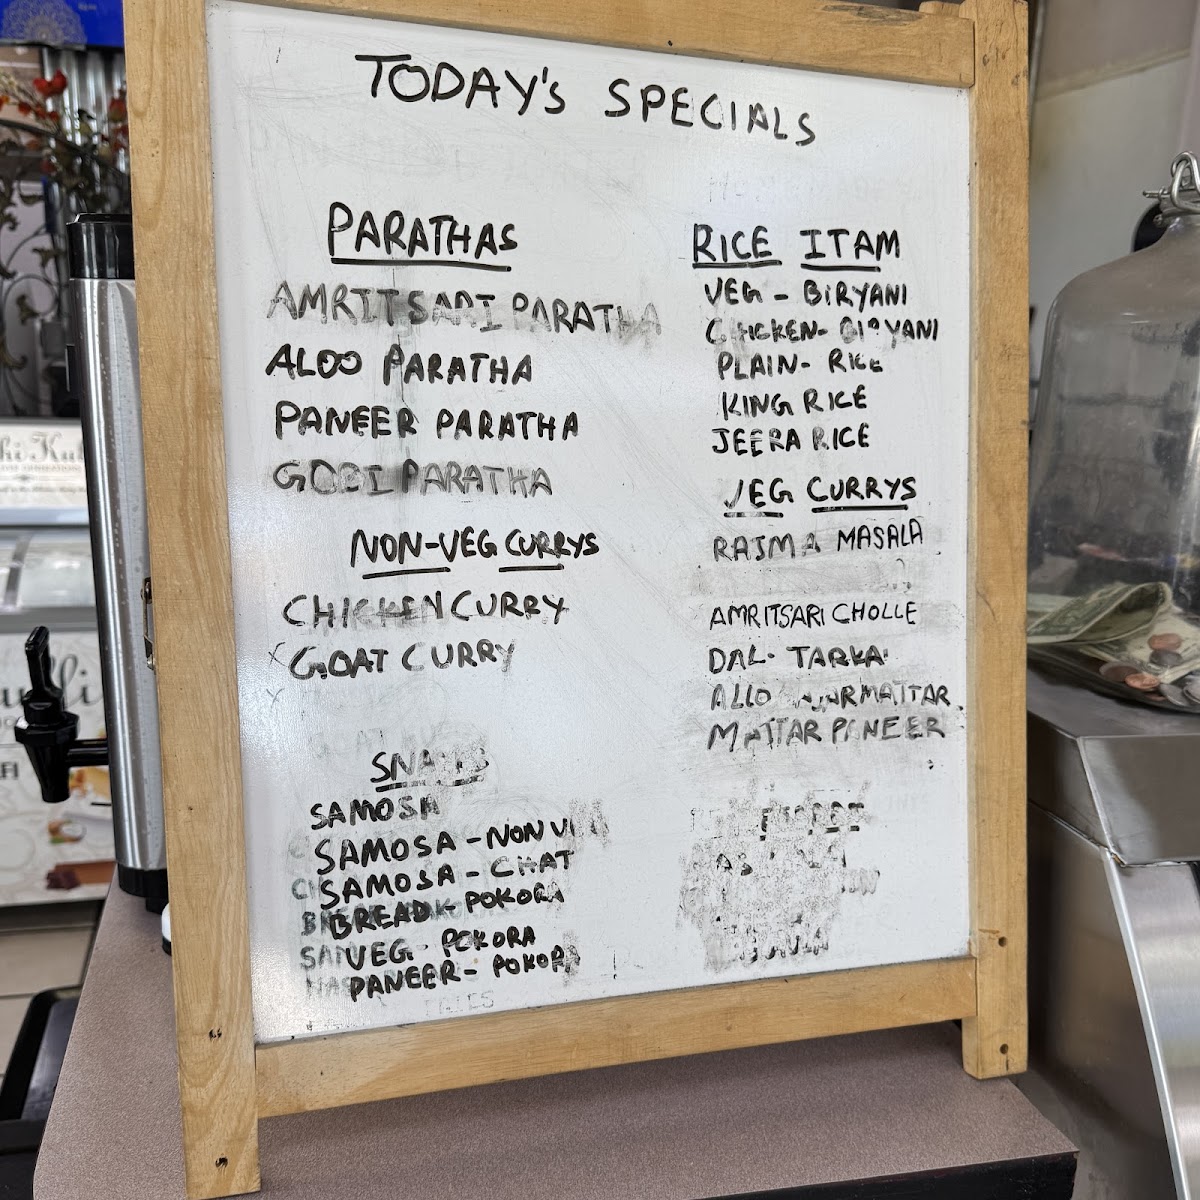 TODAY's SPECIALS
PARATHAS
AMRITSARI PARATHA
ALOO PARATHA
PANEER PARATHA
GOBI PARATHA
NON-VEG CURRYS
CHICKEN CURRY
GOAT CURRY
SNACKS
SAMOSA
SAMOSA - NON V
SAMOSA - CHAT
BREAD - POKORA
VEG - POKORA
PANEER - POKORA
RICE ITAM
VEG - BIRYANI
CHICKEN - BIRYANI
PLAIN - RICE
KING RICE
JEERA RICE
VEG CURRYS
RAJMA MASALA
AMRITSARI CHOLLE
DAL - TARKA
ALLO MATTAR
MATTAR PANEER